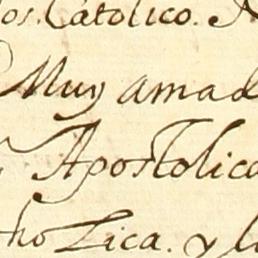 os. Catolico.
Muy amad
Apostolica
tholica. y la